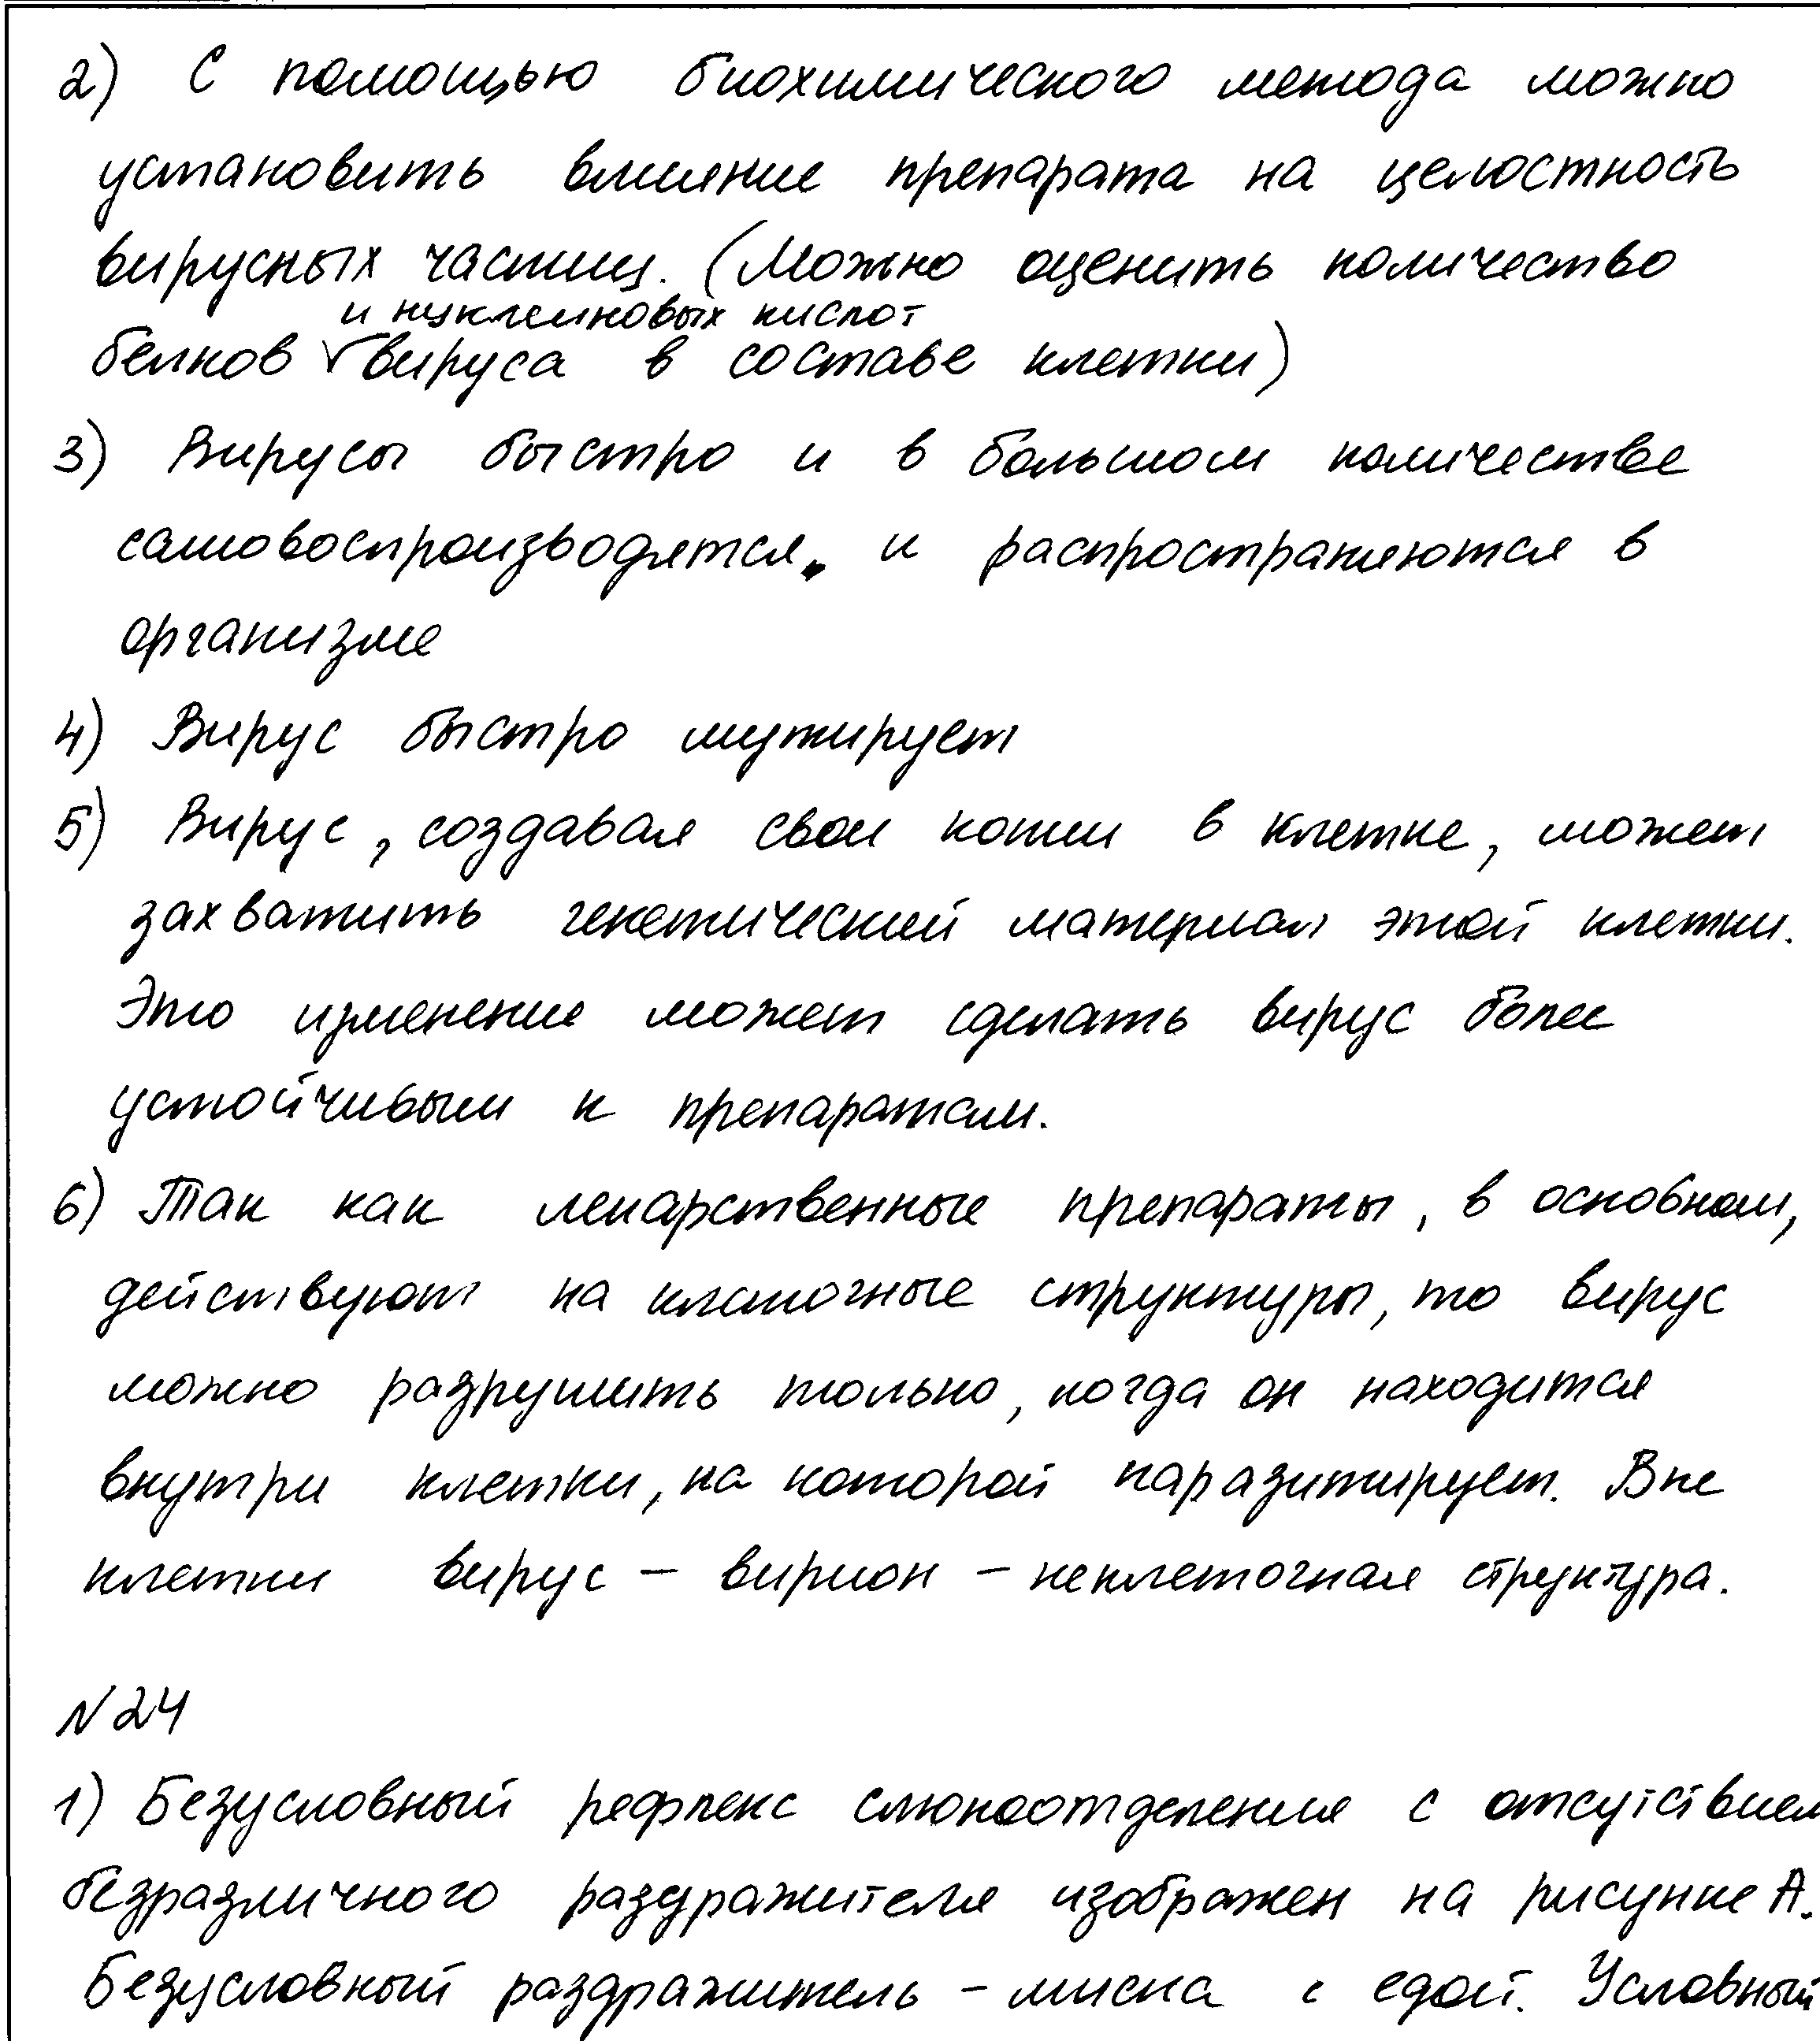 2) С помощью биохимического метода можно
установить влияние препарата на целостность
вирусных частиц. (Можно оценить количество
и нуклеиновых кислот
белков вируса в составе клетки)
3) Вирусы быстро и в большом количестве
самовоспроизводятся и распространяются в
организме
4) Вирус быстро мутирует
5) Вирус, создавая свои копии в клетке, может
захватить генетический материал этой клетки.
Это изменение может сделать вирус более
устойчивым к препаратам.
6) Так как лекарственные препараты, в основном,
действуют на клеточные структуры, то вирус
можно разрушить только, когда он находится
внутри клетки, на которой паразитирует. Вне
клетки вирус – вирион – неклеточная структура.
№24
1) Безусловный рефлекс слюноотделения с отсутствием
безразличного раздражителя изображен на рисунке А.
Безусловный раздражитель – миска с едой. Условный